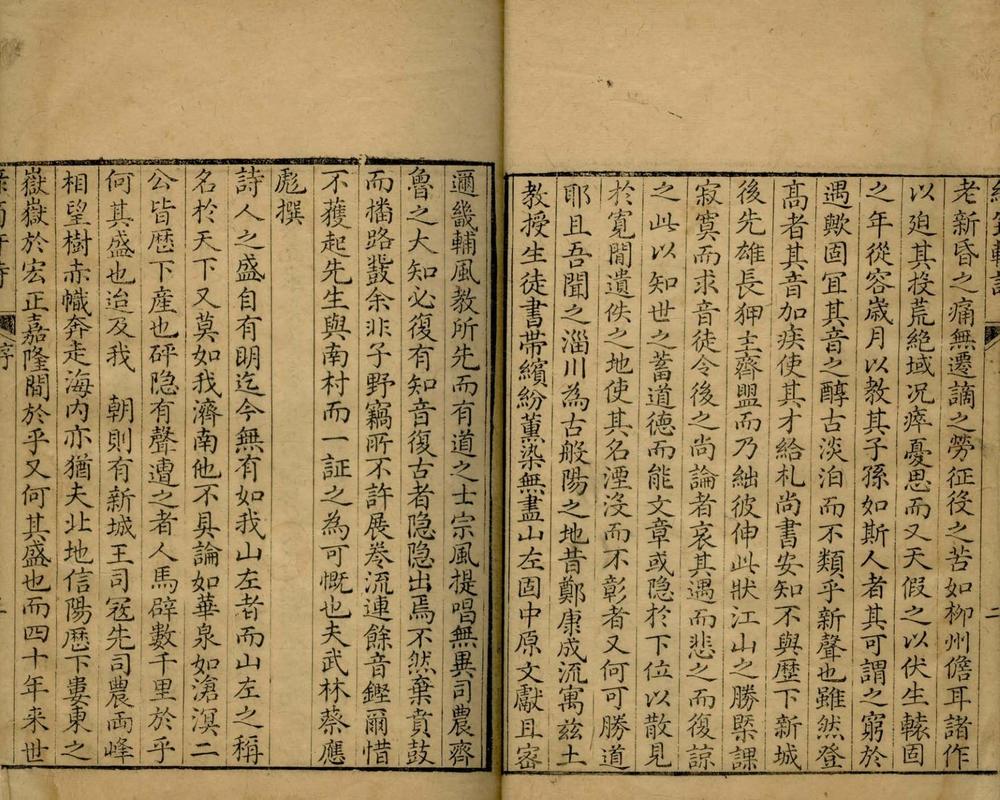 老新昏之痛無遷謫之勞征役之苦如柳州儋耳諸作
以迫其投荒絕域况瘁憂思而又天假之以伏生轅固
之年從容歲月以教其子孫如斯人者其可謂之窮於
遇歟固宜其音之醇古淡泊而不類乎新聲也雖然登
高者其音加疾使其才給札尚書安知不與歷下新城
後先雄長狎主齊盟而乃絀彼伸此狀江山之勝槩課
寂寞而求音徒令後之尚論者哀其遇而悲之而復諒
之此以知世之蓄道德而能文章或隐於下位以散見
於寛閒遺佚之地使其名湮沒而不彰者又何可勝道
耶且吾聞之淄川為古般陽之地昔鄭康成流寓兹土
教授生徒書帶繽紛薰染無盡山左固中原文獻且密
邇畿輔風教所先而有道之士宗風提唱無異司農齊
魯之大知必復有知音復古者隐隐出焉不然棄賁鼓
而播路鼗余非子野竊所不許展卷流連餘音鏗爾惜
不獲起先生與南村而一証之為可慨也夫武林蔡應
彪撰
詩人之盛自有明迄今無有如我山左者而山左之稱
名於天下又莫如我濟南他不具論如華泉如滄溟二
公皆歷下產也砰隐有聲遭之者人馬辟數千里於乎
何其盛也迨及我　朝則有新城王司寇先司農兩峰
相望樹赤幟奔走海内亦猶夫北地信陽歷下婁東之
嶽嶽於宏正嘉隆間於乎又何其盛也而四十年来世
序
二